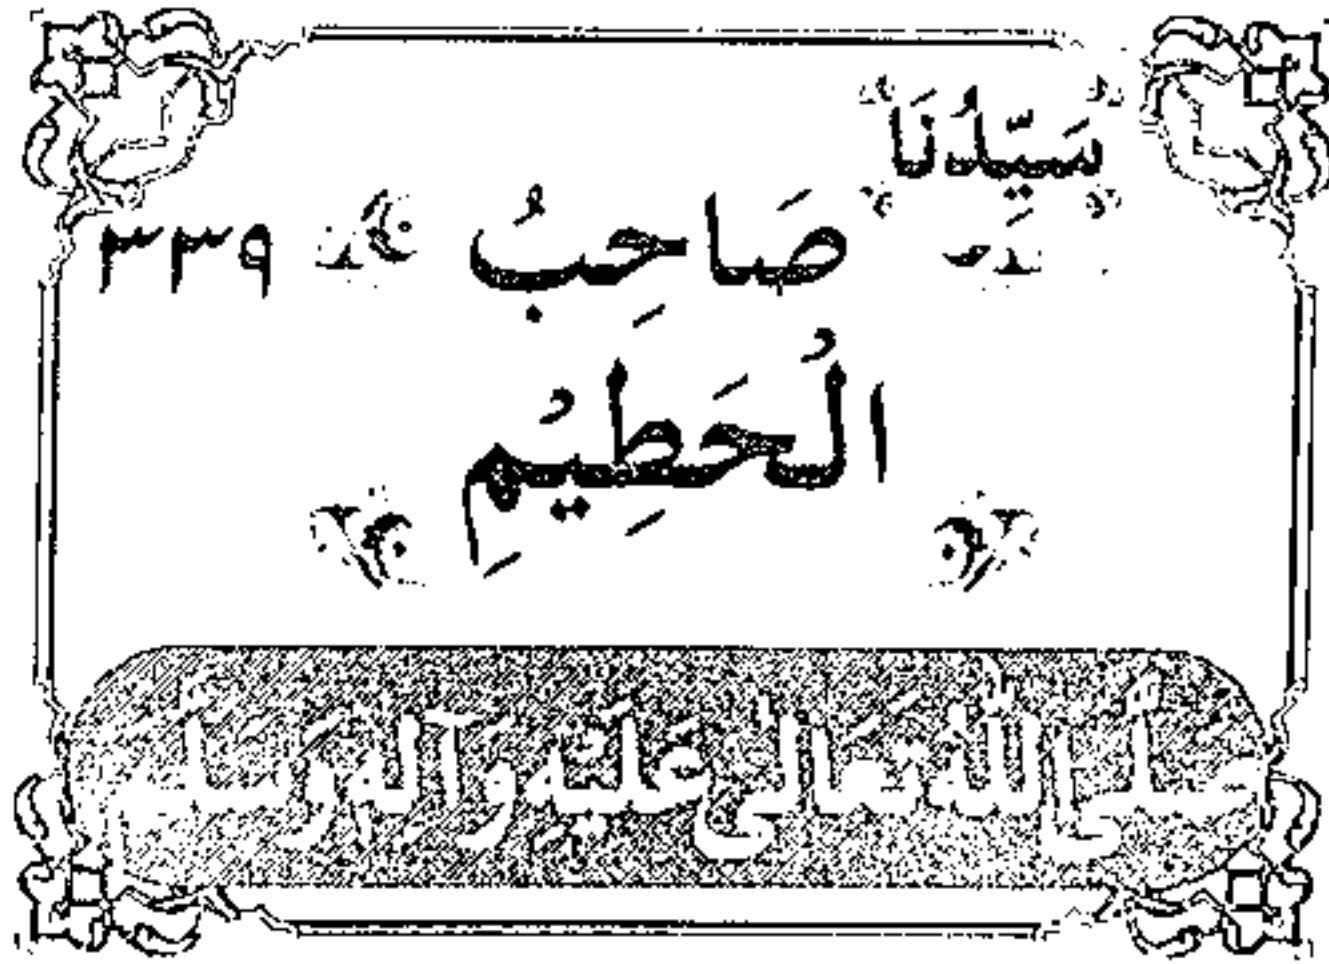 سَيِّدُنَا
صَاحِبُ ٣٣٩
الْحَطِيْمِ
صلى الله تعالى عليه وآله وسلم